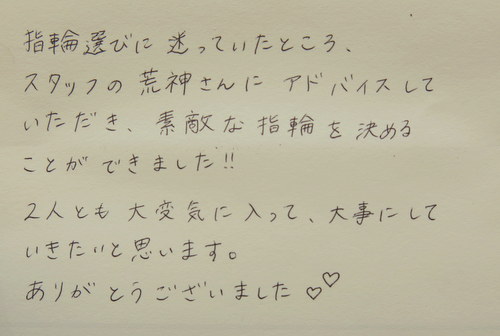 指輪選びに迷っていたところ、
スタッフの荒神さんに アドバイスして
いただき、素敵な指輪を決める
ことができました!!
2人とも大変気に入って、大事にして
いきたいと思います。
ありがとうございました♡♡